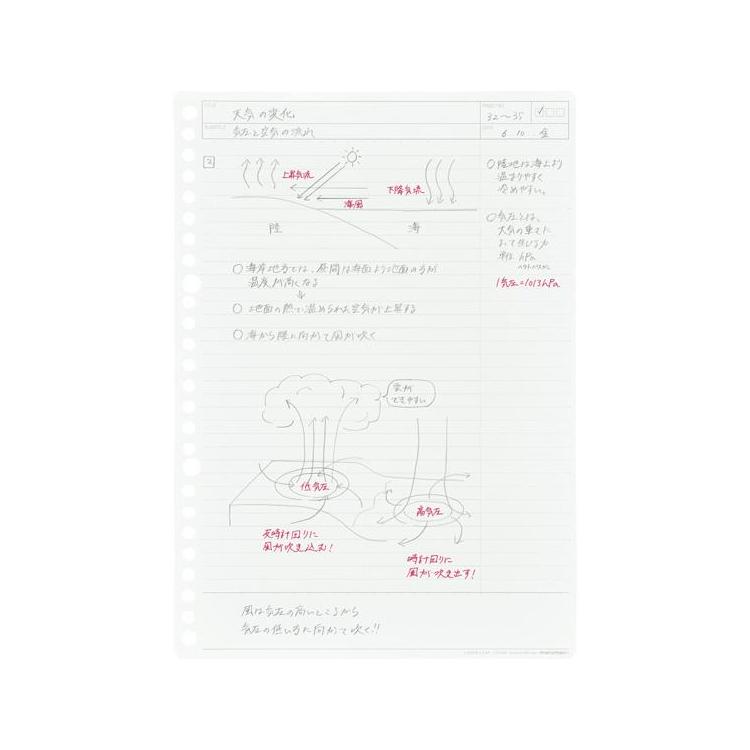 TITLE
天気の変化
PAGE/NO.
32〜35
SUBTITLE
気圧と空気の流れ
DATE
6.10.金
2
上昇気流
下降気流
海風
陸
海
○陸地は海上より
温まりやすく
冷めやすい。
○気圧とは、
大気の重さに
よって生じる力
単位 hPa
ヘクトパスカル
1気圧=1013hPa
○海岸地方では、昼間は海面より地面の方が
温度が高くなる
○地面の熱で温められた空気が上昇する
○海から陸に向かって風が吹く
雲が
できやすい
低気圧
高気圧
反時計回りに
風が吹き込む!
時計回りに
風が吹き出す!
風は気圧の高いところから
気圧の低い方に向かって吹く!!